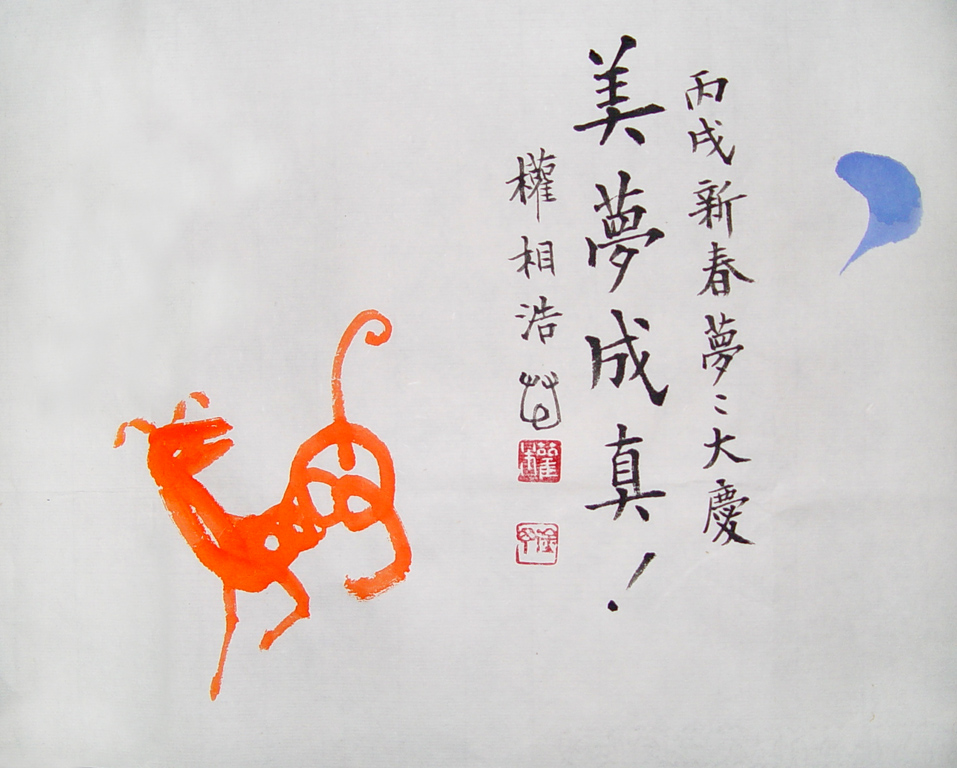 丙戌新春夢〻大慶
美夢成真！
權相浩